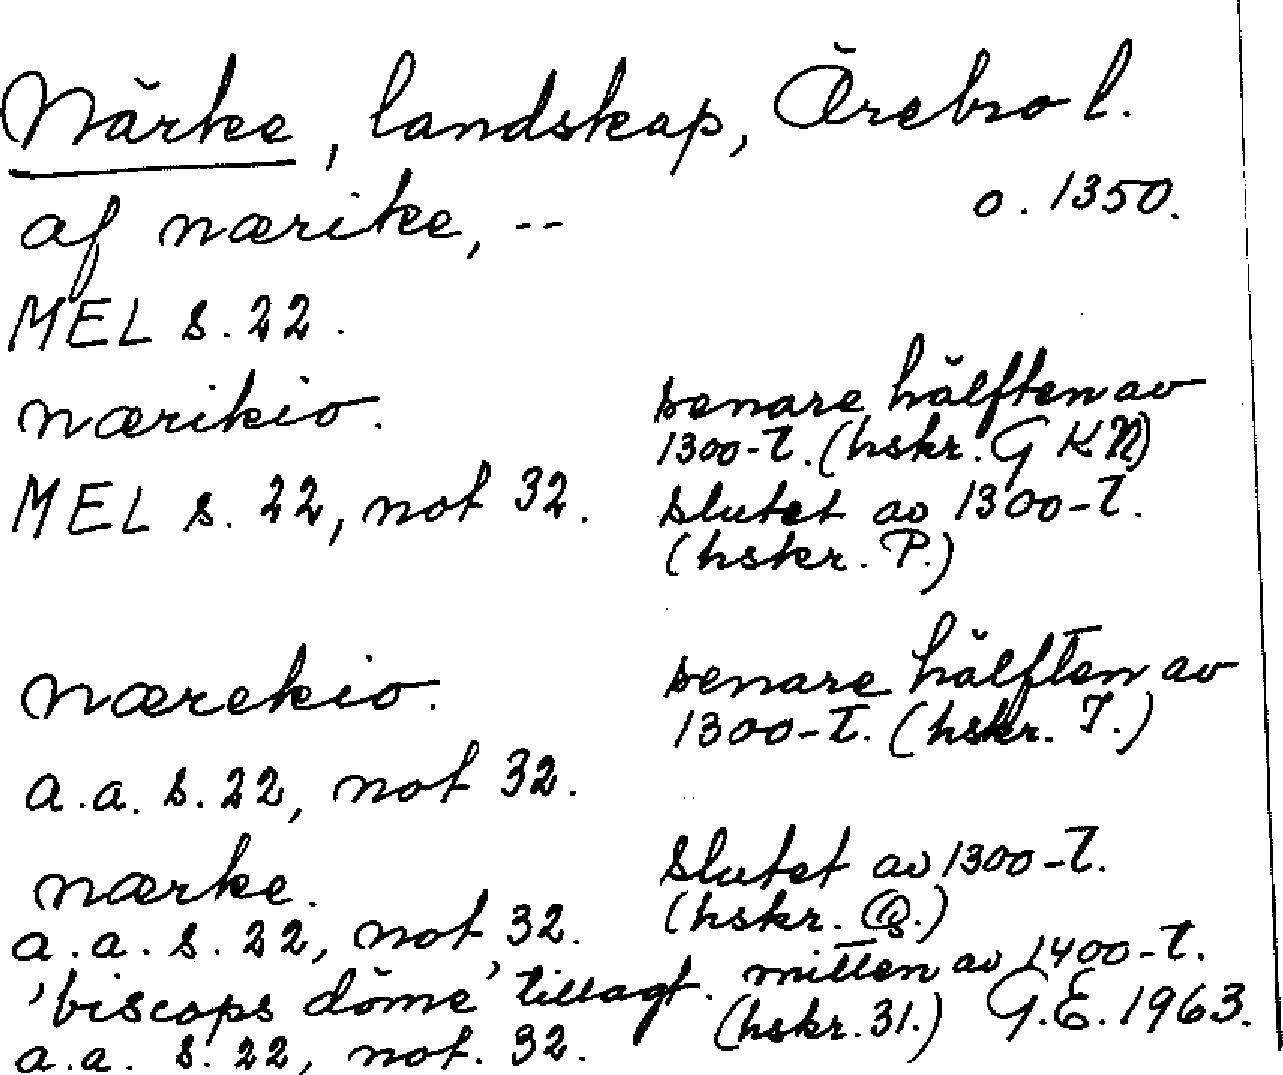 Närke, landskap, Örebro l.
af nærike, -- o. 1350.
MEL s. 22.
nærikio. senare hälften av
1300-t. (hskr. G K N)
MEL s. 22, not 32. slutet av 1300-t.
(hskr. P.)
nærekio. senare hälften av
1300-t. (hskr. I.)
a.a. s. 22, not 32.
nærke. slutet av 1300-t.
(hskr. Q.)
a.a. s. 22, not 32.
'biscops döme' tillagt. mitten av 1400-t.
(hskr. 31.) G.E. 1963.
a.a. s. 22, not. 32.